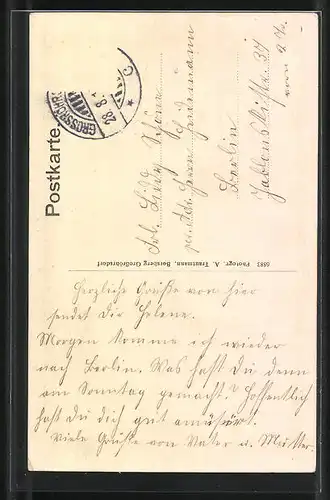 Postkarte.
GROSSRÖHRS
28.8.
C
Frl. Lizzy Schöne
Berlin
Jablonskistr. 37
vorn
6883 Photogr. A. Trautmann, Bretnig Großröhrsdorf
Herzliche Grüße von hier
sendet Dir Helene.
Morgen komme ich wieder
nach Berlin. Was hast Du denn
am Sonntag gemacht? Hoffentlich
hast Du dich gut amüsirt.
Viele Grüße von Vater u. Mutter.